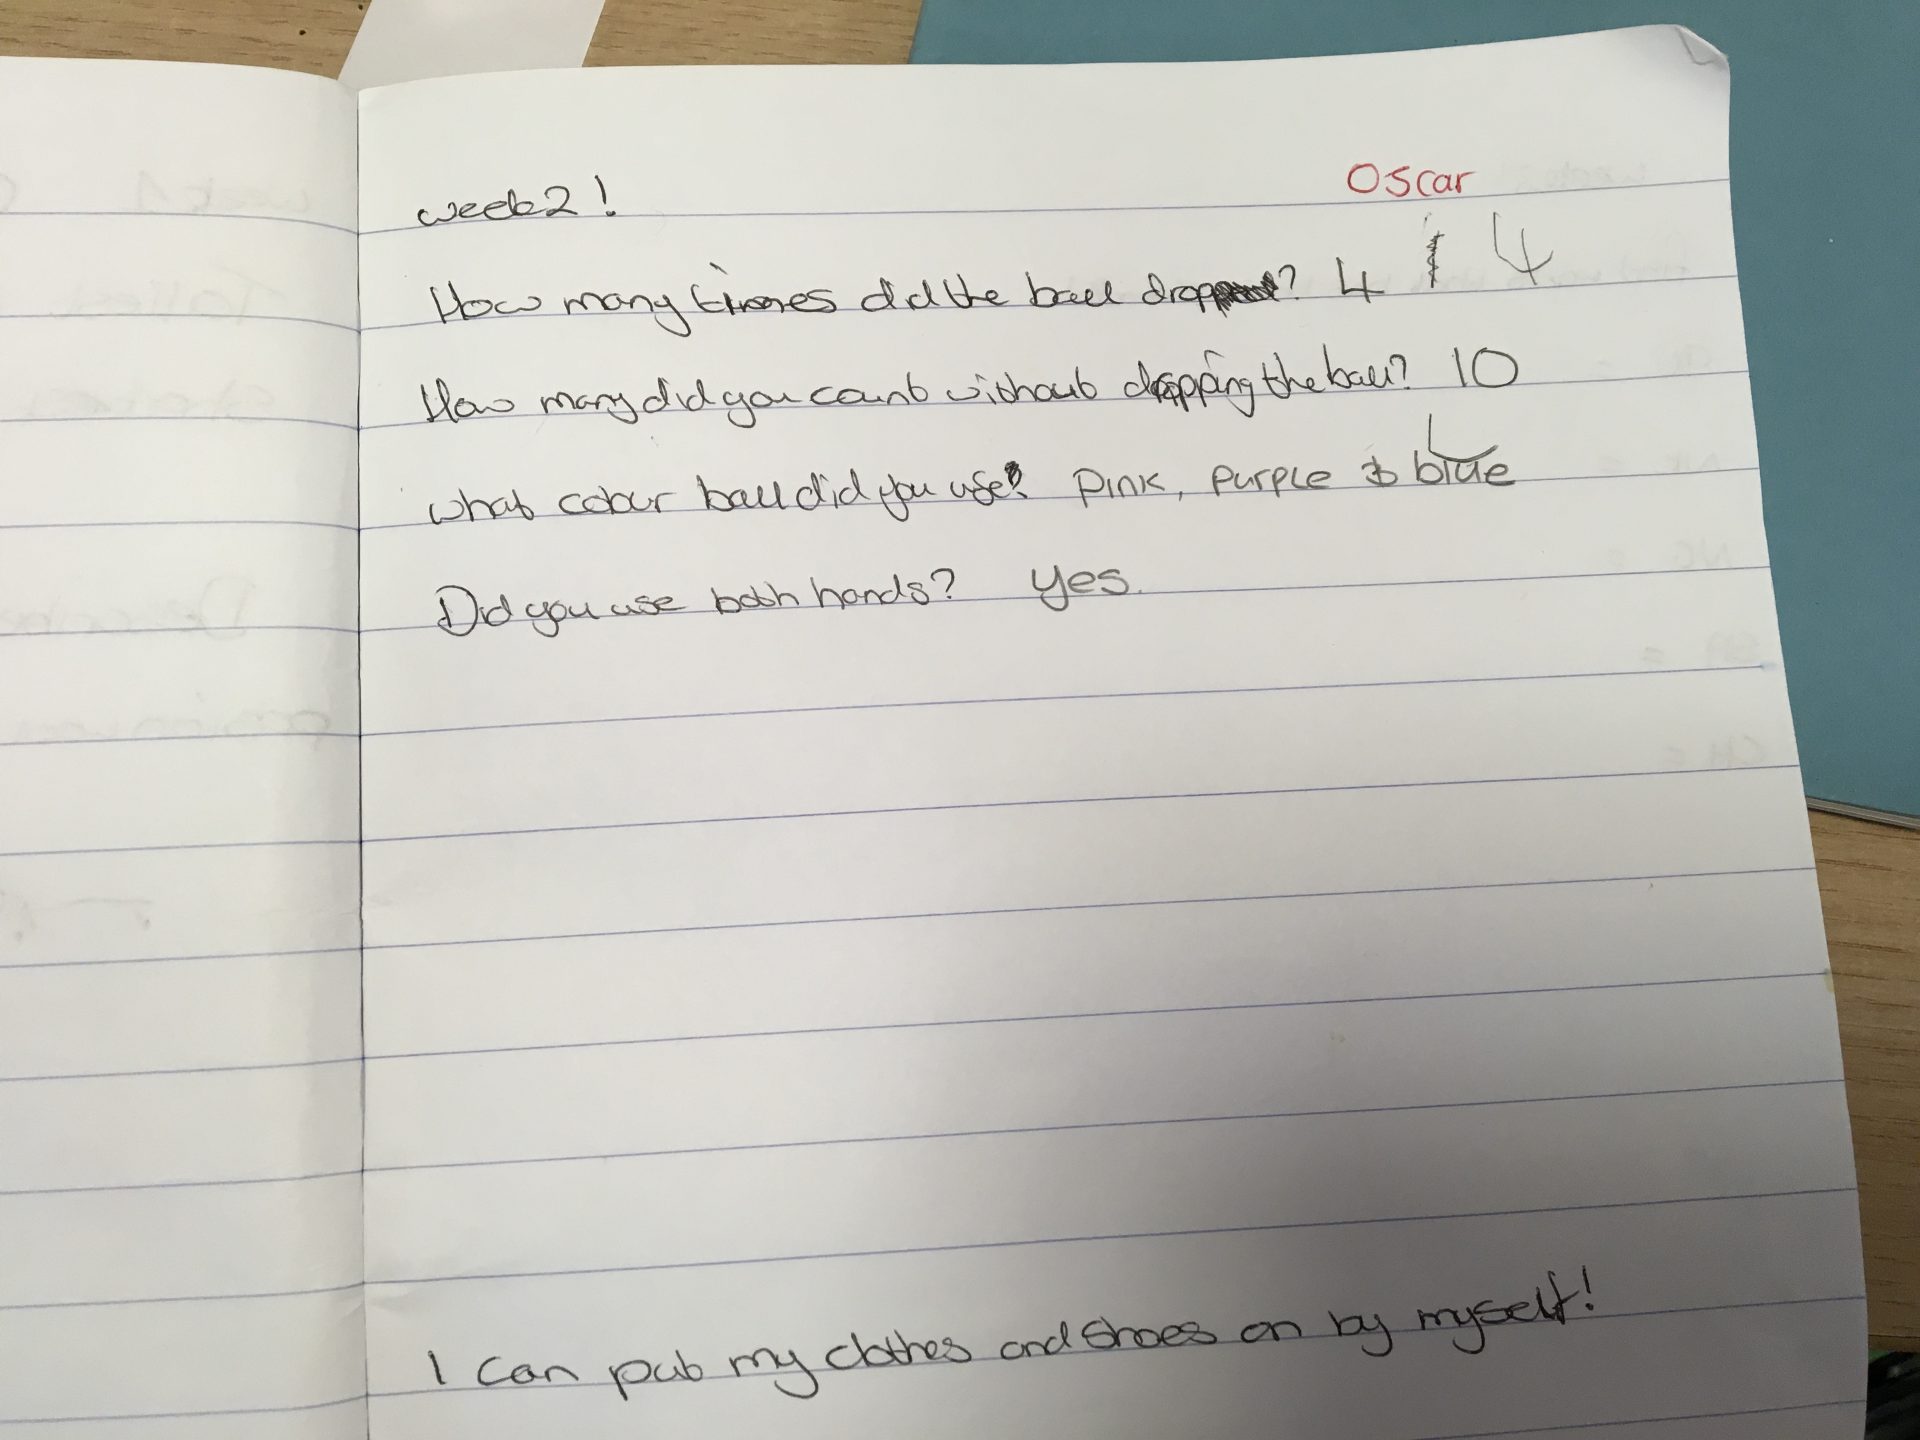 Oscar
week 2!
How many times did the ball drop? 4 4
How many did you count without dropping the ball? 10
what colour ball did you use? Pink, Purple & blue
Did you use both hands? yes.
I can put my clothes and shoes on by myself!